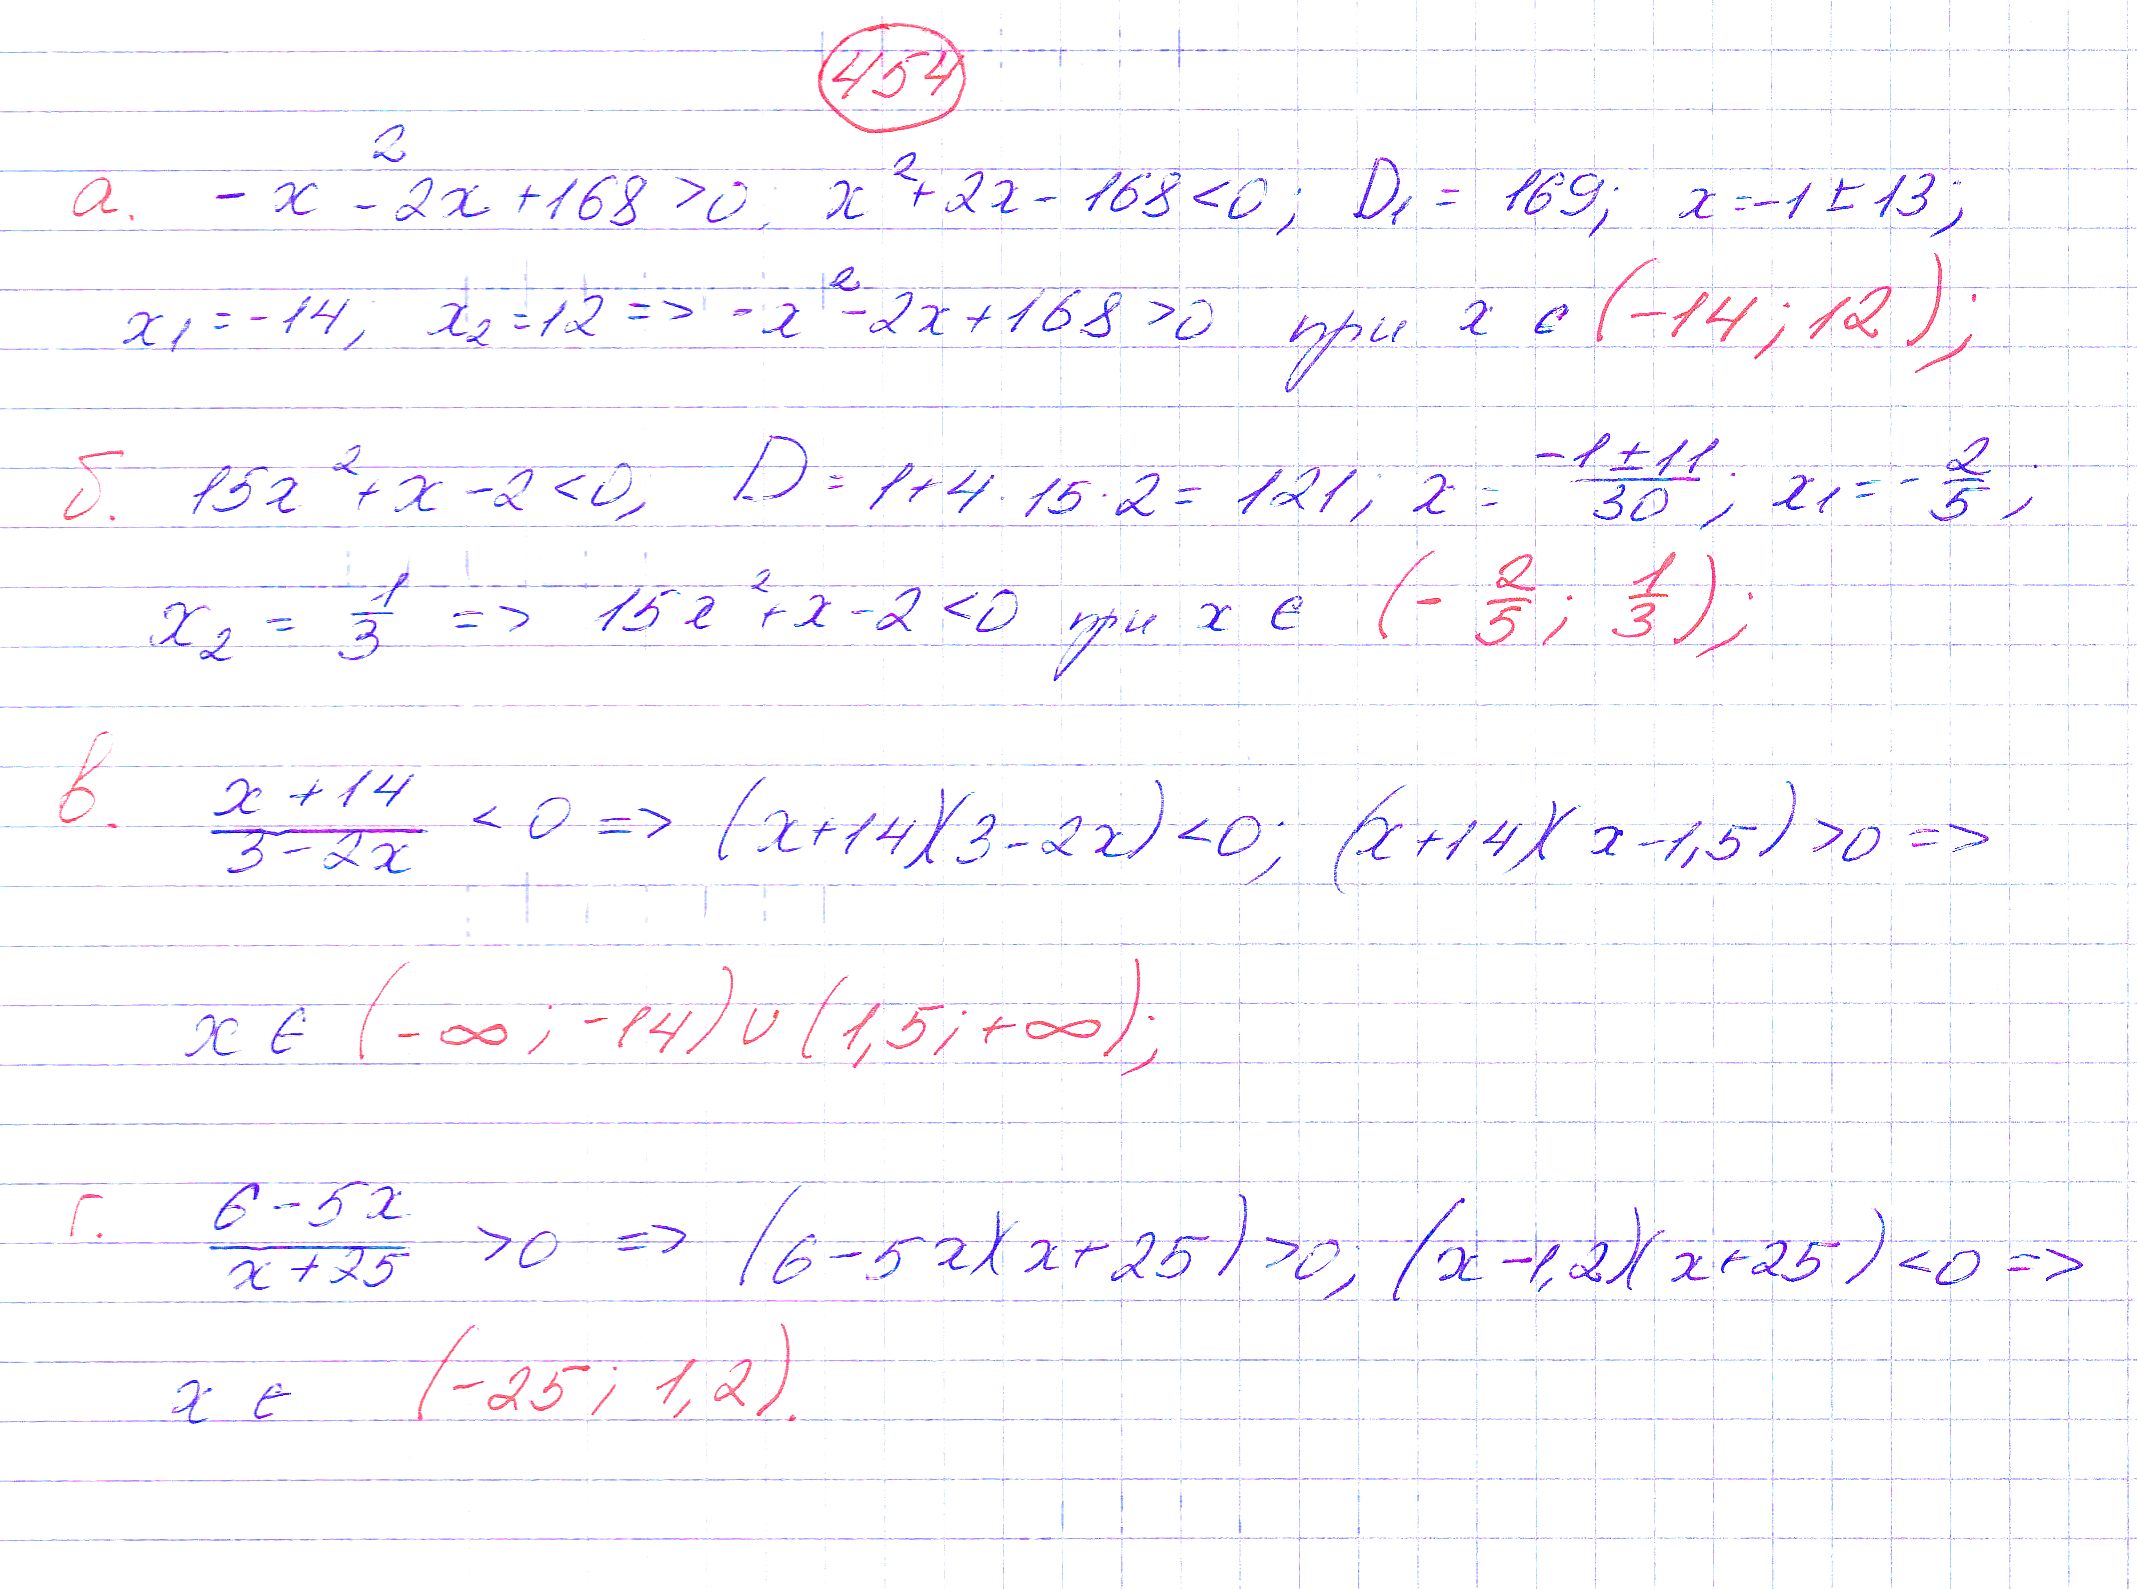 454
а. -x² - 2x + 168 > 0; x² + 2x - 168 < 0; D₁ = 169; x = -1 ± 13;
x₁ = -14, x₂ = 12 => -x² - 2x + 168 > 0 при x ∈ (-14; 12);
б. 15x² + x - 2 < 0, D = 1 + 4 · 15 · 2 = 121; x = (-1 ± 11)/30; x₁ = -2/5;
x₂ = 1/3 => 15x² + x - 2 < 0 при x ∈ (-2/5; 1/3);
в. (x + 14)/(3 - 2x) < 0 => (x + 14)(3 - 2x) < 0; (x + 14)(x - 1,5) > 0 =>
x ∈ (-∞; -14) ∪ (1,5; +∞);
г. (6 - 5x)/(x + 25) > 0 => (6 - 5x)(x + 25) > 0; (x - 1,2)(x + 25) < 0 =>
x ∈ (-25; 1,2).